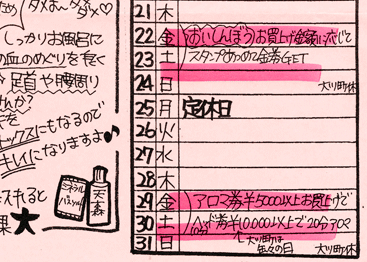 ダメよ〜ダメダメ♡
しっかりお風呂に
の血のめぐりを良く
足首や腰周り
せんか?
トックスにもなるので
キレイになりますよ♪
ミネラル
バスソルト
天森
大
21 木
22 金 おいしんぼう お買上げ金額に応じて
23 土 スタンプあつめて金券GET
24 日 大川町休
25 月 定休日
26 火
27 水
28 木
29 金 アロマ券半5000以上お買上げで
30 土 ヘッド券半10,000以上で20分アロマ
10分
31 日 大川町は 大川町休